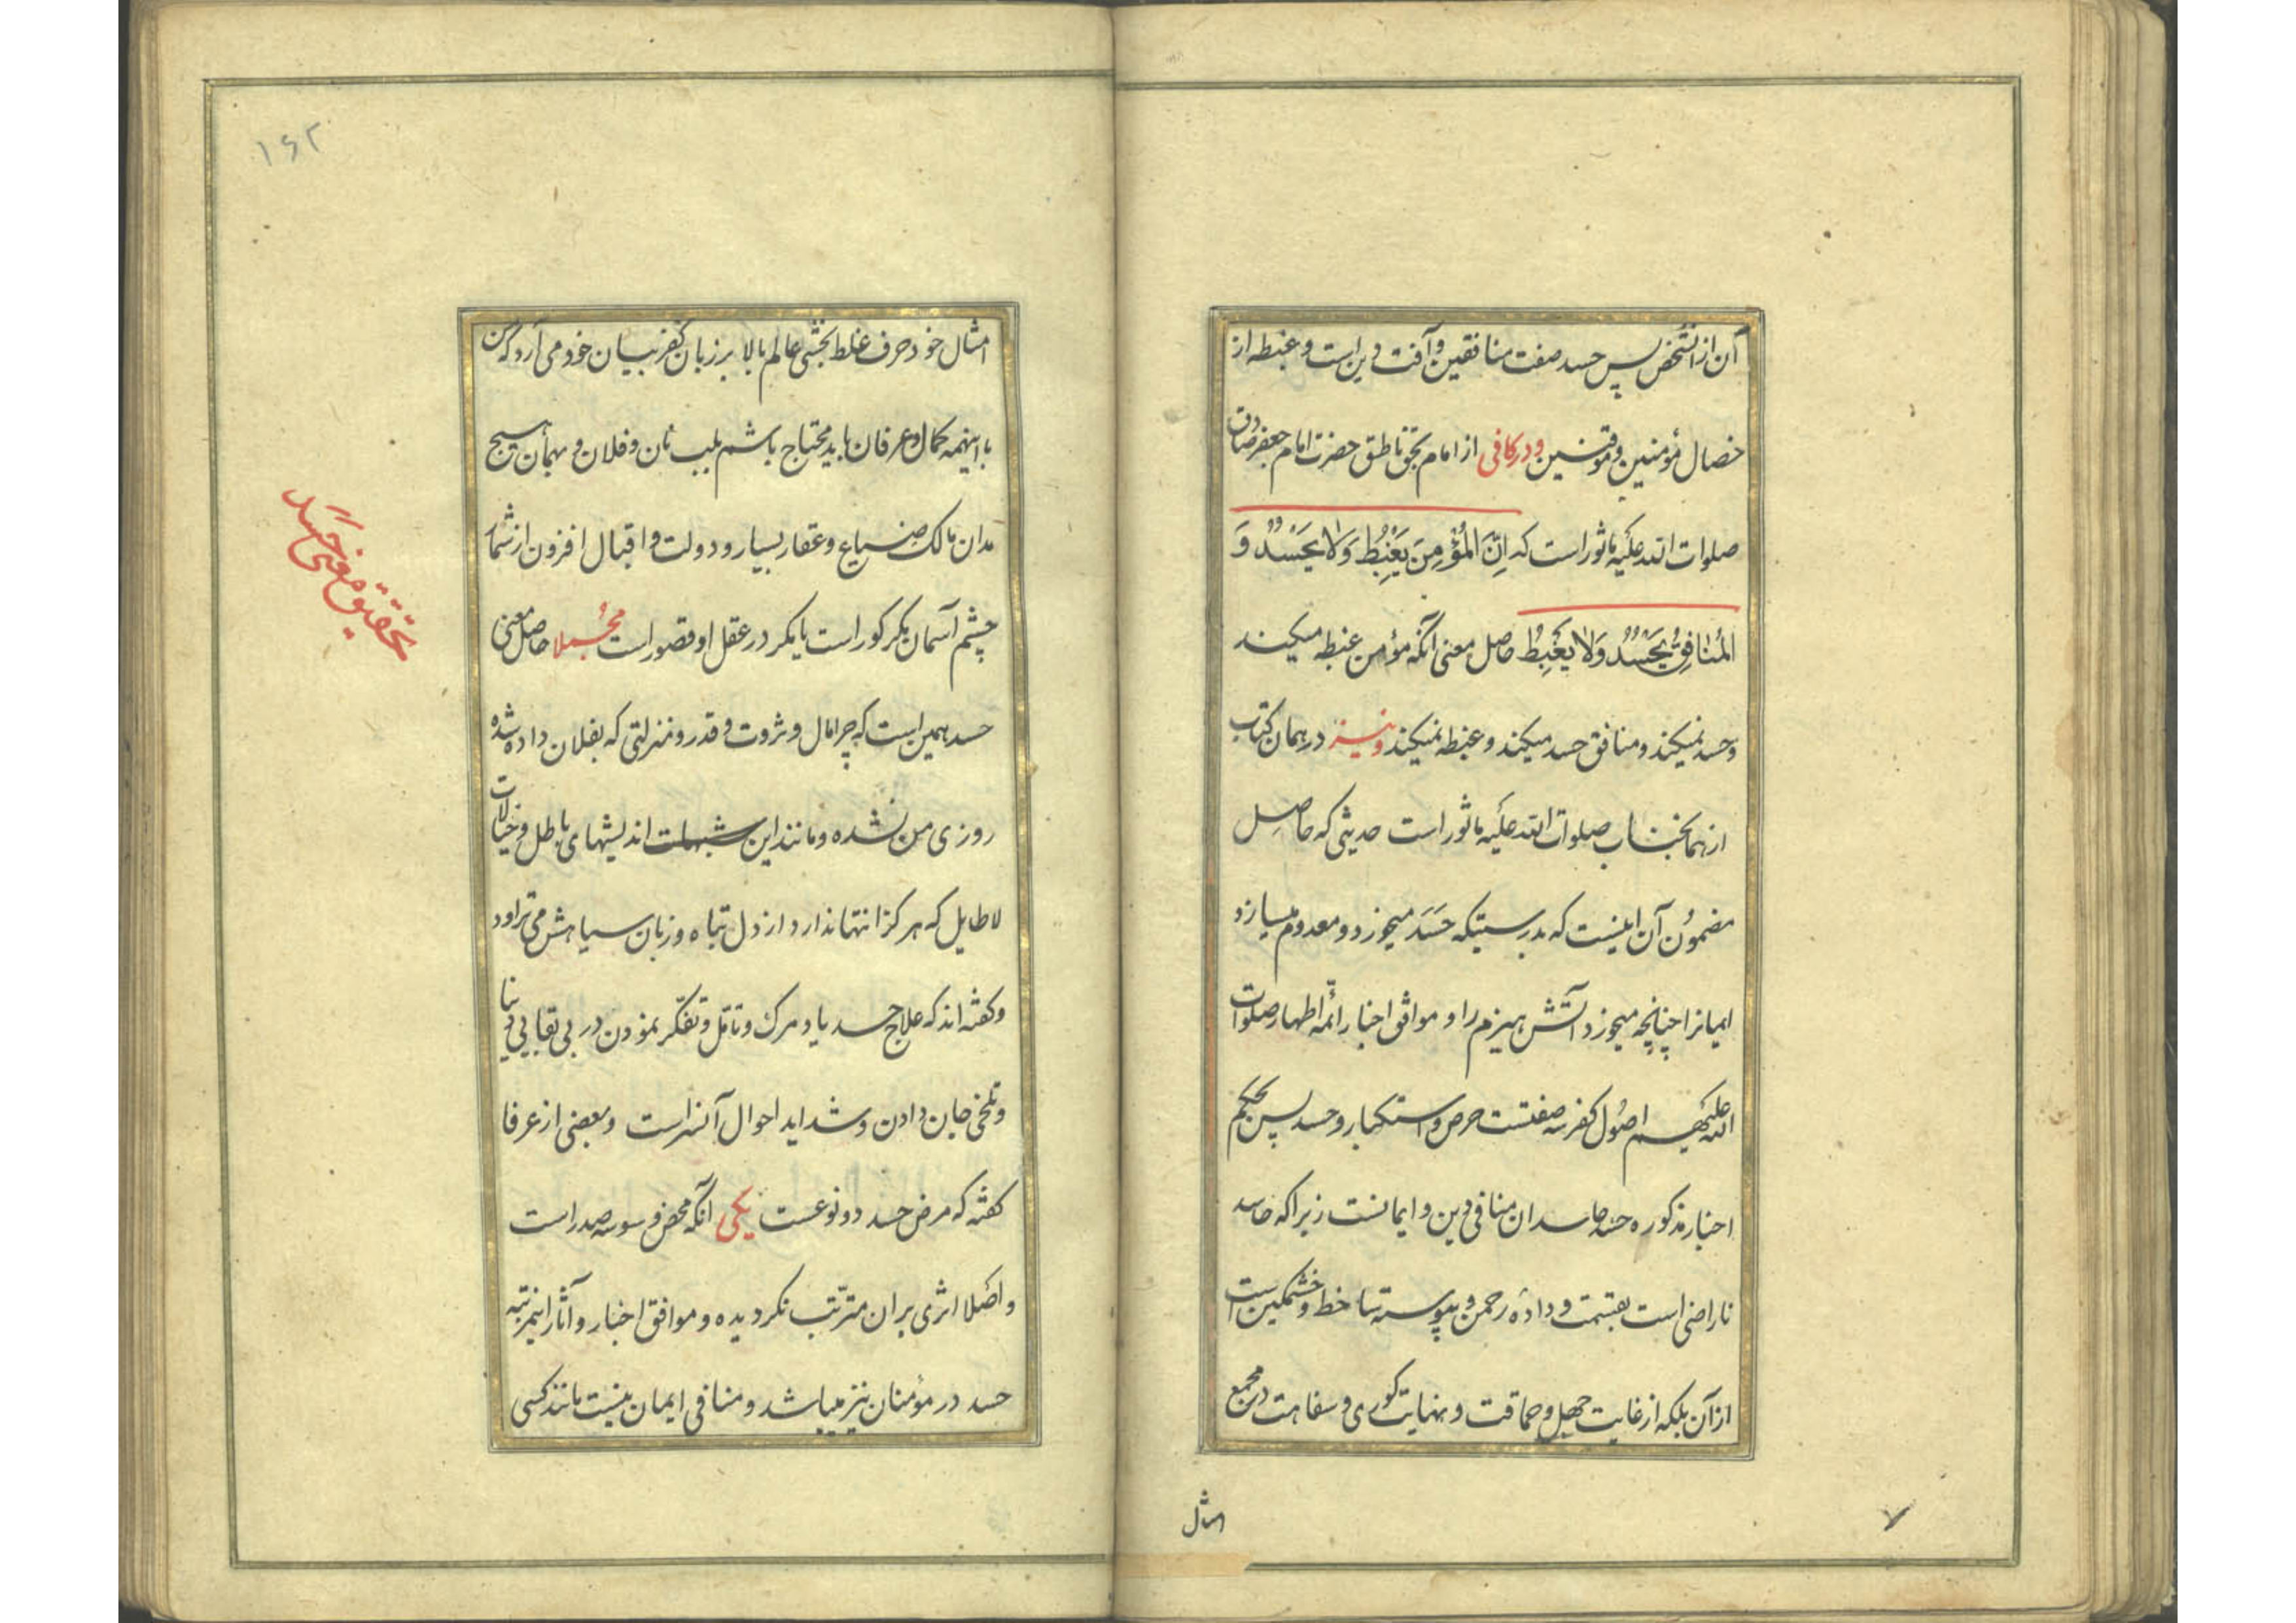 آن از آنشخص پس حسد صفت منافقین و آفت دین است و غبطه از
خصال مؤمنین و موقنین و در کافی از امام بحق ناطق حضرت امام جعفر صادق
صلوات الله علیه ماثور است که اِنَّ المُؤمِنَ یَغْبِطُ وَلا یَحْسُدُ وَ
المُنافِقُ یَحْسُدُ وَلا یَغْبِطُ حاصل معنی آنکه مؤمن غبطه میکند
و حسد نمیکند و منافق حسد میکند و غبطه نمیکند و نیز در همان کتاب
از همانجناب صلوات الله علیه ماثور است حدیثی که حاصل
مضمون آن اینست که بدرستیکه حَسَد میخورد و معدوم میسازد
ایمانرا چنانچه میخورد آتش هیزم را و موافق اخبار ائمّه اطهار صلوات
الله علیهم اصول کفر سه صفتست حرص و استکبار و حسد پس بحکم
اخبار مذکوره حسد حاسدان منافی دین و ایمانست زیرا که حاسد
ناراضی است بقسمت و دادهٔ رحمن و پیوسته ساخط و خشمگین است
از آن بلکه از غایت جهل و حماقت و نهایت کوری و سفاهت در مجمع
امثال
۷
۱۶۲
امثال خود حرف غلط بخشی عالم بالا بر زبان کفر بیان خود می آرد که من
با اینهمه کمال و عرفان باید محتاج باشم بلب نان و فلان و بهمان هیچ
مدان مالک ضیاع و عقار بسیار و دولت و اقبال افزون از شمار
چشم آسمان مکر کور است یا مکر در عقل او قصور است مجملا حاصل معنی
حسد همین است که چرا مال و ثروت و قدر و منزلتی که بفلان داده شده
روزی من نشده و مانند این شبهات اندیشهای باطل و خیالات
لاطایل که هرکز انتها ندارد از دل تباه و زبان سیاهش می تراود
و کفته اند که علاج حسد یاد مرک و تأمّل و تفکّر نمودن در بی بقایی دنیا
و تلخی جان دادن و شداید احوال آنسراست و بعضی از عرفا
کفته که مرض حسد دو نوعست یکی آنکه محض وسوسه صدر است
و اصلا اثری بران مترتّب نکردیده و موافق اخبار و آثار اینمرتبه
حسد در مؤمنان نیز میباشد و منافی ایمان نیست مانند کسی
تحقیق معنی حَسَد